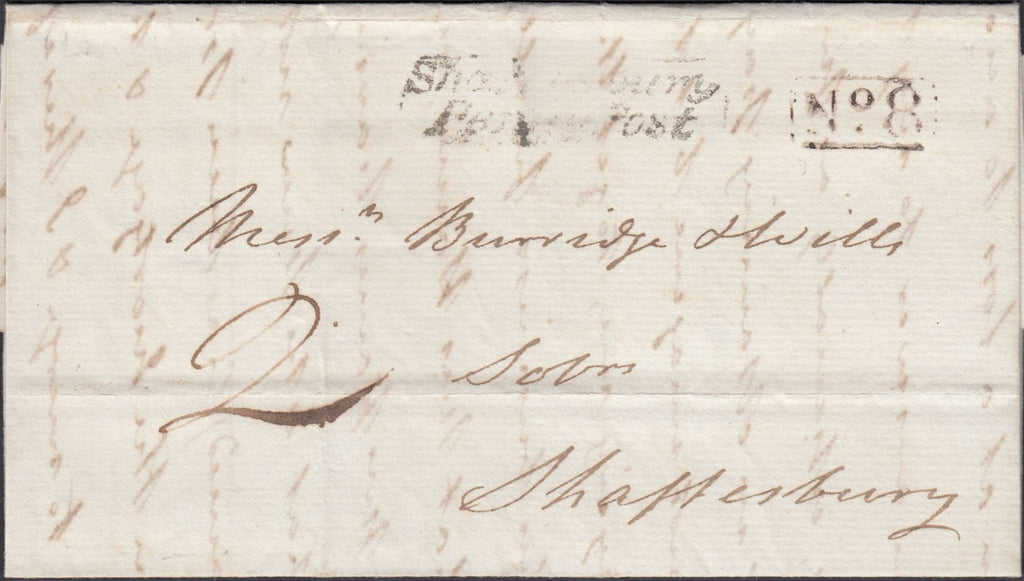 Shaftesbury
Penny Post
No 8
Messrs Burridge & Wills
2
Solrs
Shaftesbury